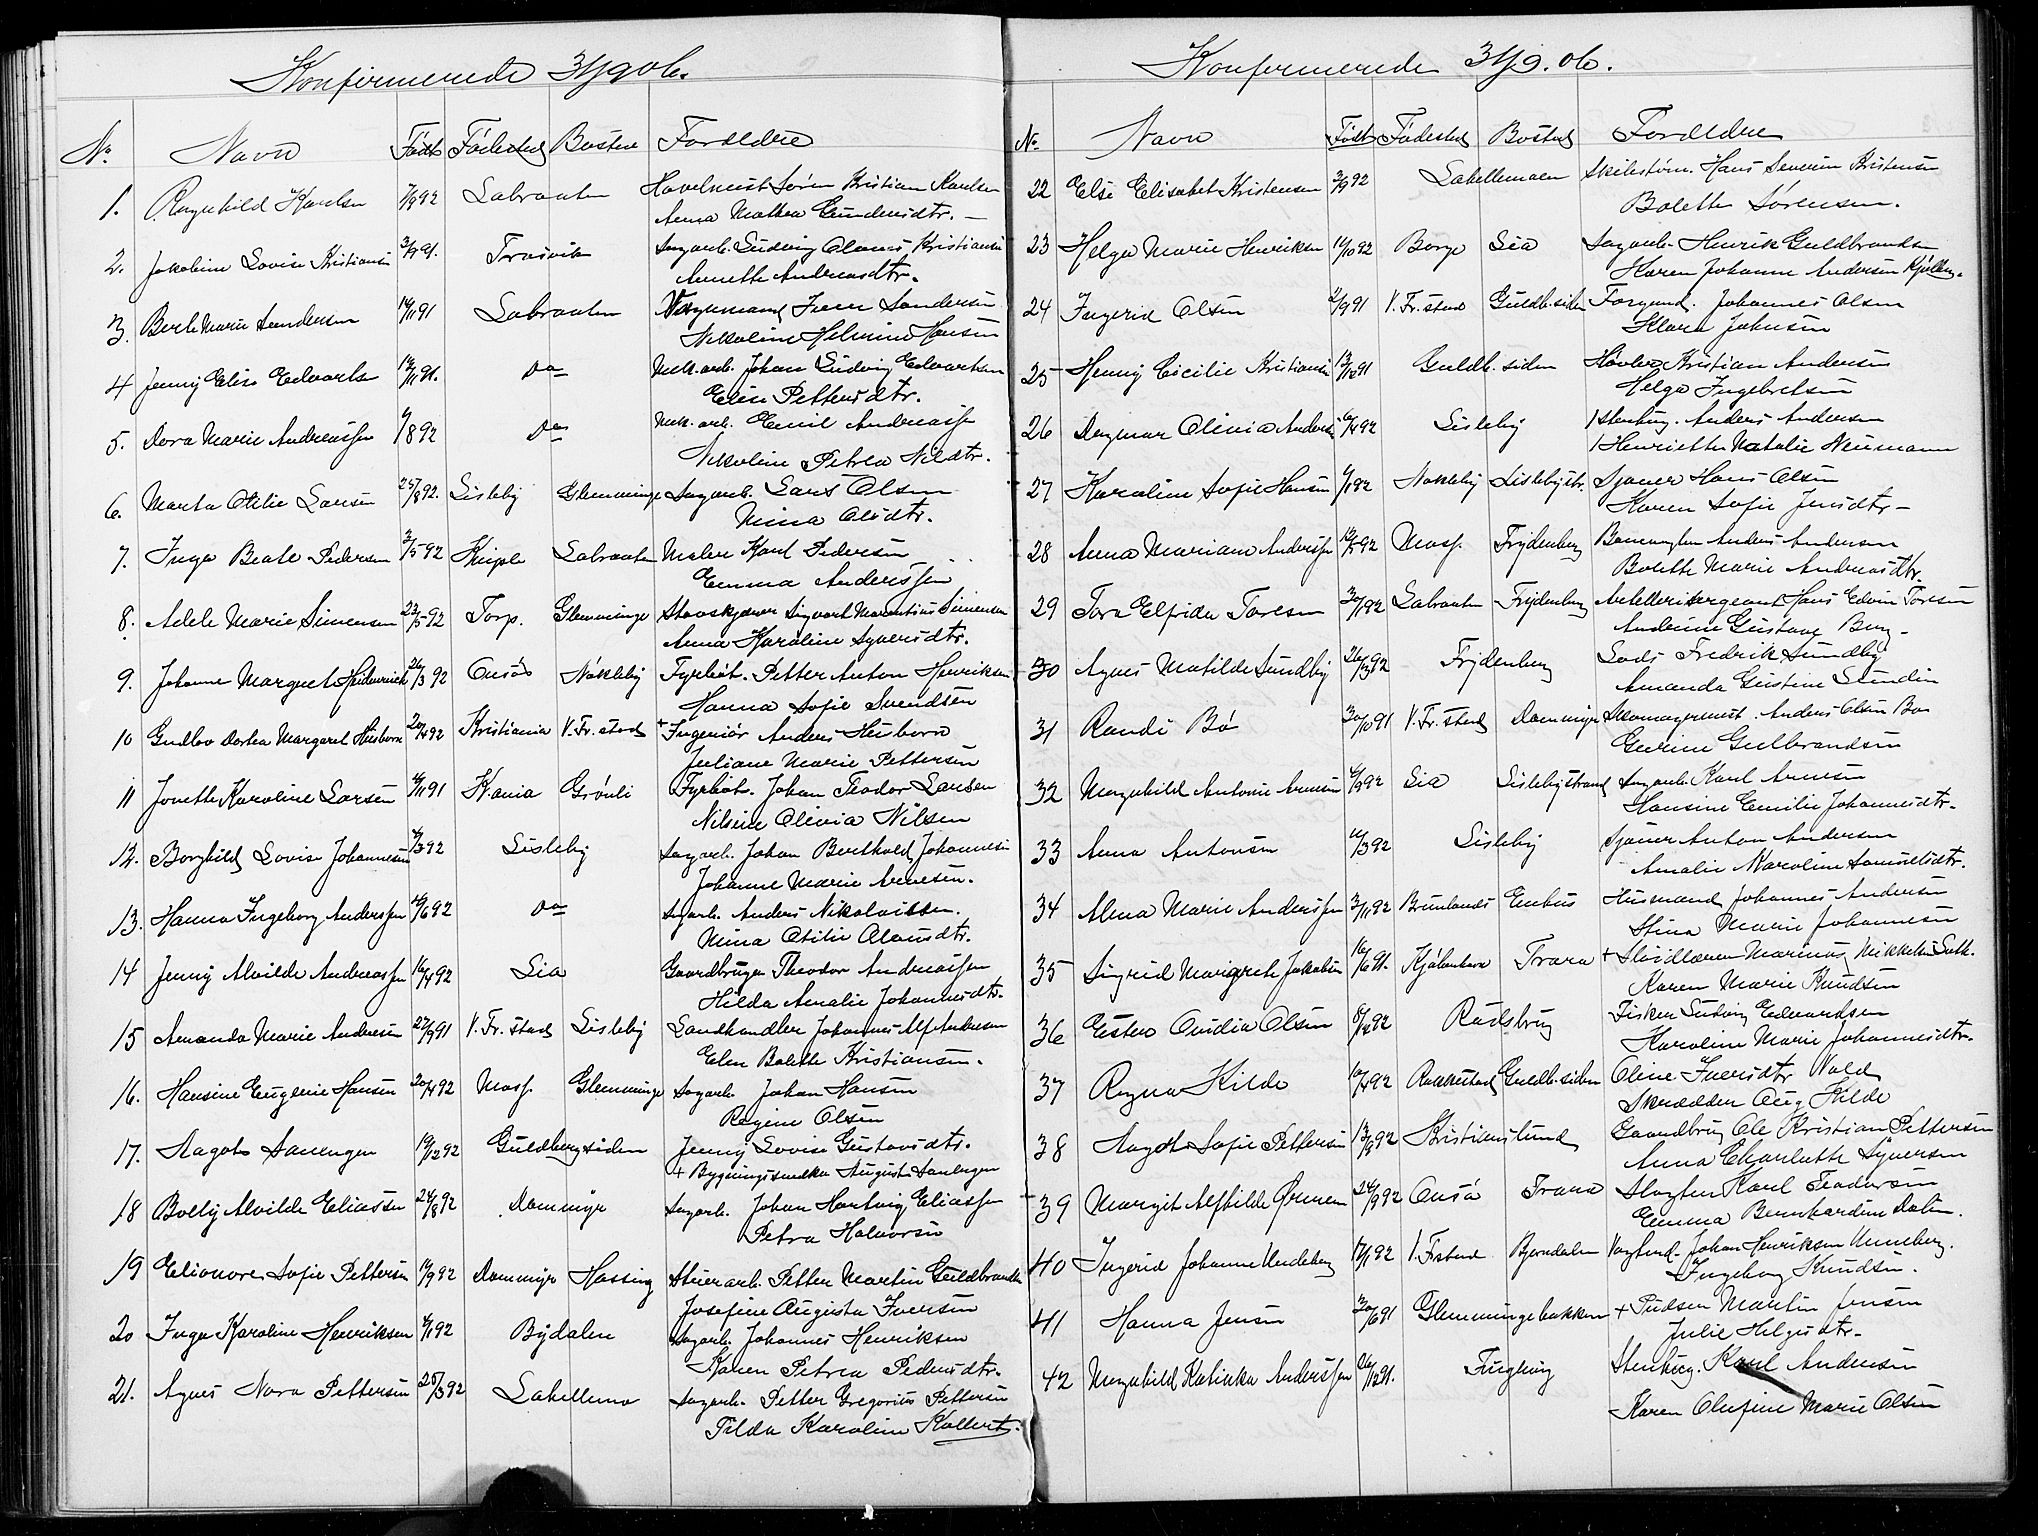 Konfirmerede 30/9 06.
No. Navn Født Fødested Bosted Forældre
1. Ragnhild Karlsen 7/9 92 Labraaten Høvelmest Søren Kristian Karlsen
Anna Mathea Gundersdtr. —
2. Jakobine Lovise Kristiansen 3/9 91. Trosvik Sagarb. Ludvig Olaus Kristiansen
Annette Andreasdtr.
3. Berte Marie Sandersen 14/11 91 Labraaten Iver Sandersen
Nikoline Helmine Hansen
4 Jenny Elise Edvarts 14/11 91. Do Mek. arb. Johan Ludvig Edvartsen
Eline Pettersdtr.
5. Dora Marie Andreassen 4/8 92 Do Mek. arb. Emil Andreassen
Nikoline Petrea Nilsdtr.
6. Marta Otilie Larsen 25/8 92. Lisleby Glemminge Sagarb. Lars Olsen
Mina Olsdtr.
7. Inga Beate Pedersen 3/5 92 Labraaten Maler Karl Pedersen
Emma Anderssen
8. Adele Marie Simensen 23/5 92 Torp. Glemminge Stavskjærer Sigvart Marentius Simensen
Anna Karoline Syversdtr.
9. Johanne Margret Heidenreich 26/3 92 Onsø Nøkleby Fyrbøt. Petter Anton Henriksen
Hanna Sofie Svendsen
10 Gudlov Dortea Margaret Husborn 20/4 92 Kristiania V. Fr. stad + Ingeniør Anders Husborn
Juliane Marie Pettersen
11 Jonette Karoline Larsen 4/11 91 K.ania Grønli Fyrbøt. Johan Teodor Larsen
Nilsine Olivia Nilsen
12. Borghild Lovise Johannesen 4/3 92 Lisleby Sagarb. Johan Berthold Johannesen
Johanne Marie Arnesen.
13. Hanna Ingeborg Anderssen 19/6 92 Do Sagarb. Anders Nikolaissen.
Mina Otilie Olausdtr.
14 Jenny Alvilde Andreassen 16/4 92 Lia Gaardbruger Theodor Andreassen
Hilda Amalie Johannesdtr.
15 Amanda Marie Andersen 27/9 91 V. Fr. stad Lisleby Landhandler Johannes Alf Andersen
Elen Bolette Kristiansen.
16. Hansine Eugenie Hansen 20/4 92 Moss. Glemminge Sagarb. Johan Hansen
Regine Olsen
17. Aagot Sanengen 19/12 92 Guldbergsiden Jenny Lovise Gustavsdtr.
+ Bygningssnedker August Sanengen
18 Bolly Alvilde Eliassen 24/8 92 Dammyr Sagarb. Johan Hartvig Eliassen
Petra Halvorsen
19 Elionore Sofie Pettersen 19/9 92 Dammyr Hassing Stuerarb. Petter Martin Guldbrandsen
Josefine Augusta Iversen
20 Inga Karoline Henriksen 4/1 92 Bydalen Sagarb. Johannes Henriksen
Karen Petrea Pedersdtr.
21. Agnes Nora Pettersen 25/3 92 Lakellemo Sagarb. Petter Gregorius Pettersen
Tilda Karoline Kollert.
Konfirmerede 30/9. 06.
No. Navn Født Fødested Bosted Forældre
22 Else Elisabet Kristensen 3/9 92 Lakellemoen Skibstøm. Hans Severin Kristensen
Bolette Sørensen.
23 Helga Marie Henriksen 14/10 92 Borge Lia Sagarb. Henrik Guldbrandsen
Karen Johanne Andersen
24 Ingerid Olsen 2/9 91 V. Fr. stad Guldb. siden Johannes Olsen
Klara Johnsen
25 Henny Cicilie Kristiansen 13/12 91 Guldb. siden Høvler Kristian Andersen
Helga Ingebretsen
26 Dagmar Olivia Andersen 16/4 92 Lisleby Stenhug. Anders Andersen
Henriette Natalie Neumann
27 Karoline Sofie Hansen 4/1 92 Nøkleby Lislebystr. Sjauer Hans Olsen
Karen Sofie Jensdtr —
28 Anna Mariane Anderssen 14/5 92 Moss. Frydenberg Anders Andersen
Bolette Marie Andreasdtr.
29 Tora Elfrida Toresen 30/1 92 Labraaten Frydenberg Artillerisergeant Hans Edvin Toresen
Andrine Gustava Berg —
30 Agnes Matilde Sundby 26/3 92 Frydenberg Lods Fredrik Sundby
Amanda Gustine Lundin
31 Randi Bø 30/10 91 V. Fr. stad Dammyr Skomagermest. Anders Olsen Bø
Gurine Gulbrandsen
32 Margnhild Antonie Arnesen 4/9 92 Lia Lislebystrand Sagarb. Karl Arnesen
Hansine Emilie Johannesdtr.
33 Anna Antonsen 10/3 92 Lisleby Sjauer Anton Andersen
Amalie Karoline Samuelsdtr.
34 Alma Marie Anderssen 3/11 92 Brunlanes Enhus Husmand Johannes Andersen
Stina Marie Johannesen
35 Sigrid Margrete Jakobsen 16/6 91. Kjøbenhavn Trara + Marinus Mikkelsen
Karen Marie Knudsen
36 Ester Ovidia Olsen 8/2 92 Rødsbrug Fisker Ludvig Edvardsen
Karoline Marie Johannesdtr.
37 Ragna Kilde 10/4 92 Rakkestad Guldb. siden Oline Iversdtr Vold
Skrædder Aug Kilde
38 Aagot Sofie Pettersen 13/9 92 Kristianslund Gaardbrug Ole Kristian Pettersen
Anna Charlotte Syversen
39 Margit Alfhilde 24/9 92 Onsø Trara Slagter Karl Teodorsen
Emma Bernhardine Dalen.
40 Ingerid Johanne Undeberg 17/1 92 V. Fr.stad Bjørndalen Johan Henriksen Unneberg.
Ingeborg Knudsen.
41 Hanna Jensen 30/6 91 Glemmingebakken + Pudsen Martin Jensen
Julie Helgesdtr.
42 Margnhild Katinka Anderssen 26/12 91. Fuglevig Stenhug. Karl Andersen
Karen Olufine Marie Olsen